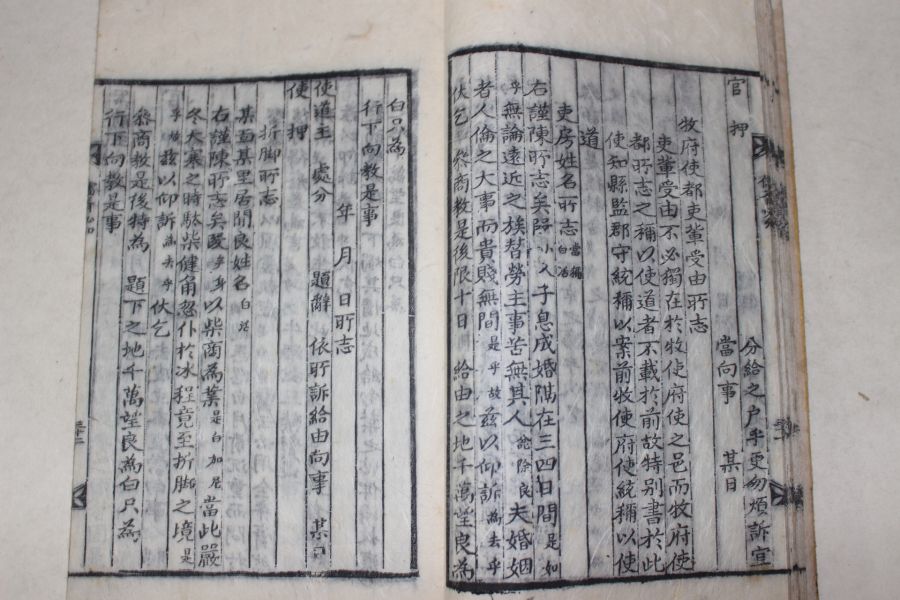 分給之戶乎更勿煩訴宜
當向事　某日
官　押
牧府使都吏輩受由所志
吏輩受由不必獨在於牧府使之邑而牧府使
都所志之稱以使道者不載於前故特別書於此
使知縣監郡守統稱以案前牧使府使統稱以使
道
吏房姓名所志
右謹陳所志矣段小人子息成婚隔在三四日間是如
乎無論遠近之族替勞主事苦無其人除良夫婚姻
者人倫之大事而貴賤無間是乎故玆以仰訴為去乎
伏乞　叅商教是後限十日　給由之地千萬望良為
白只為
行下向教是事
年　月　日所志
使道主　處分　題辭　依所訴給由向事　某日
使　押
折脚所志
某面某里居閒良姓名白活
右謹陳所志矣段矣身以柴商為業是白加尼當此嚴
冬大寒之時駄柴健角忽仆於冰程竟至折脚之境是
乎故玆以仰訴為去乎　伏乞
叅商教是後特為　題下之地千萬望良為白只為
行下向教是事